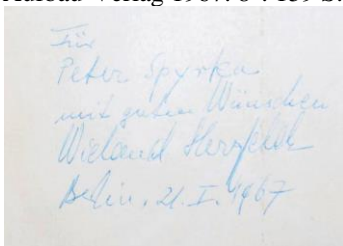 Aufbau-Verlag 1967. 8°. 159 S.
Für
Peter Spyrka
mit guten Wünschen
Wieland Herzfelde
Berlin, 21. I. 1967